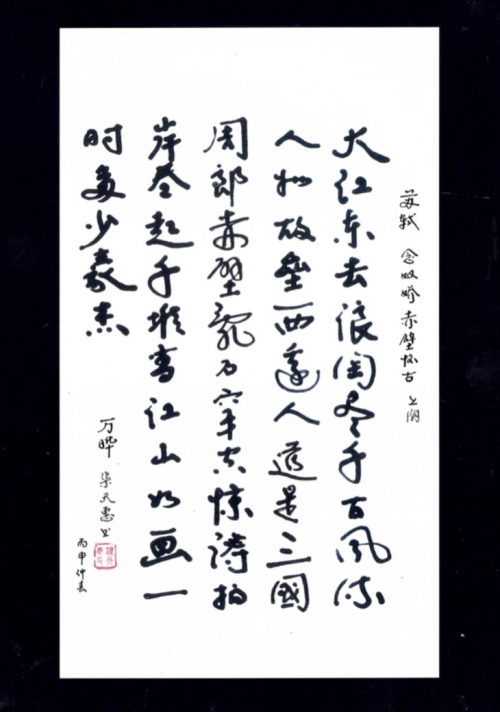 苏轼 念奴娇 赤壁怀古 上阕
大江东去浪淘尽千百风流
人物故壘西邊人道是三國
周郎赤壁亂石穿空惊涛拍
岸卷起千堆雪江山如画一
时多少豪杰
万晔 天惠书
丙申仲春